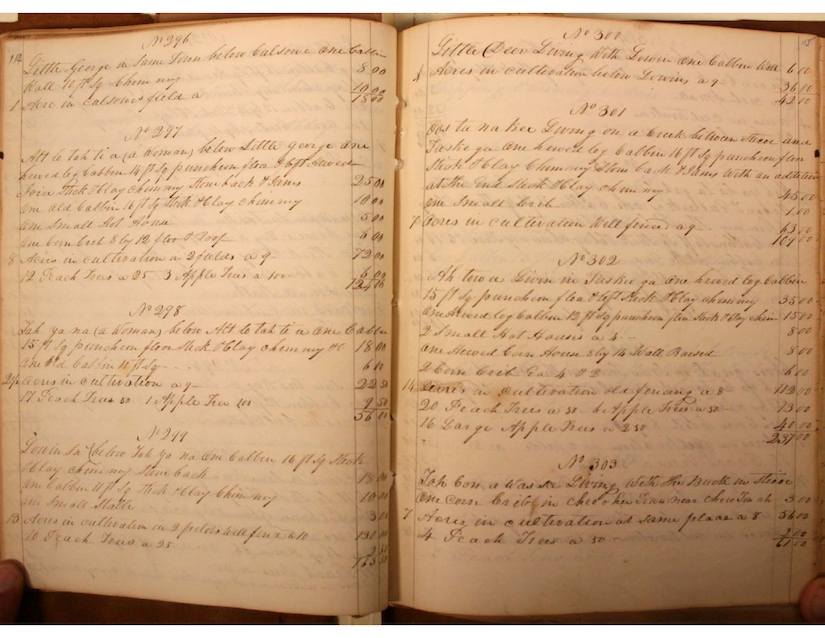 112
No 296
Little George in Same Town below Culsowe One Cabbin
Wall 11 ft Sq Chimny 8 00
1 Acre in Calsowes field a 10 00
18 00
No 297
Att lo tah ti a (a Woman) below Little George One
hewed log Cabbin 14 ft Sq puncheon floor & loft Hewed
Stick & Clay chimny Stone back & Jams 25 00
One old Cabbin 16 ft Sq Stick & Clay chimny 10 00
One Small Hot House 5 00
One corn Crib 8 by 12 floor & Roof 6 00
8 Acres in cultivation in 2 fields a 9 72 00
12 Peach Trees a 25 3 Apple Trees a 100 6 00
124 00
No 298
Tah ya na (a Woman) below Att lo tah ti a One Cabbin
15 ft Sq puncheon floor Stick & Clay chimny &C 18 00
One old Cabbin 11 ft Sq 6 00
2½ acres in cultivation a 9 22 50
17 Peach Trees 50 1 Apple Tree 100 9 50
56 00
No 299
below Tah ya na One Cabbin 16 ft Sq Stick
& Clay chimny Stone back 18 00
One Cabbin 11 ft Sq Stick & Clay Chimny 10 00
One Small Stable 3 00
13 Acres in cultivation in 2 fields well fence a 10 130 00
10 Peach Trees a 25 2 50
163 50
No 300
Little Deer Living With Lowin One Cabbin Wall 6 00
4 Acres in cultivation below Lowins a 9 36 00
42 00
No 301
Oos ta na kee Living on a Creek between Stecoe and
Tuskee ga One hewed log Cabbin 16 ft Sq puncheon floor
Stick & Clay Chimny Stone back & Jams With an addition
at the End Stick & Clay chimny 45 00
One Small Crib 1 00
7 Acres in cultivation Well fenced a 9 63 00
109 00
No 302
Ah tow a Livin in Tuskee ga One hewed log Cabbin
15 ft Sq puncheon floor & loft Stick & Clay chimny 35 00
One Hewed log Cabbin 12 ft Sq puncheon floor Stick & Clay chim 15 00
2 Small Hot Houses a 4 8 00
One Hewed Corn House 2 by 14 Wall Raised 8 00
2 Corn Cribs Ea 4 & 2 6 00
14 Acres in cultivation old fencing a 8 112 00
20 Peach Trees a 50 6 Apple Trees a 50 13 00
16 Large Apple Trees a 2 50 40 00
237 00
No 303
Tah Cow a Was kee Living With the Buck in Stecoe
One Corn Crib in 3 00
7 Acres in cultivation at same place a 8 56 00
4 Peach Trees a 50 2 00
61 00